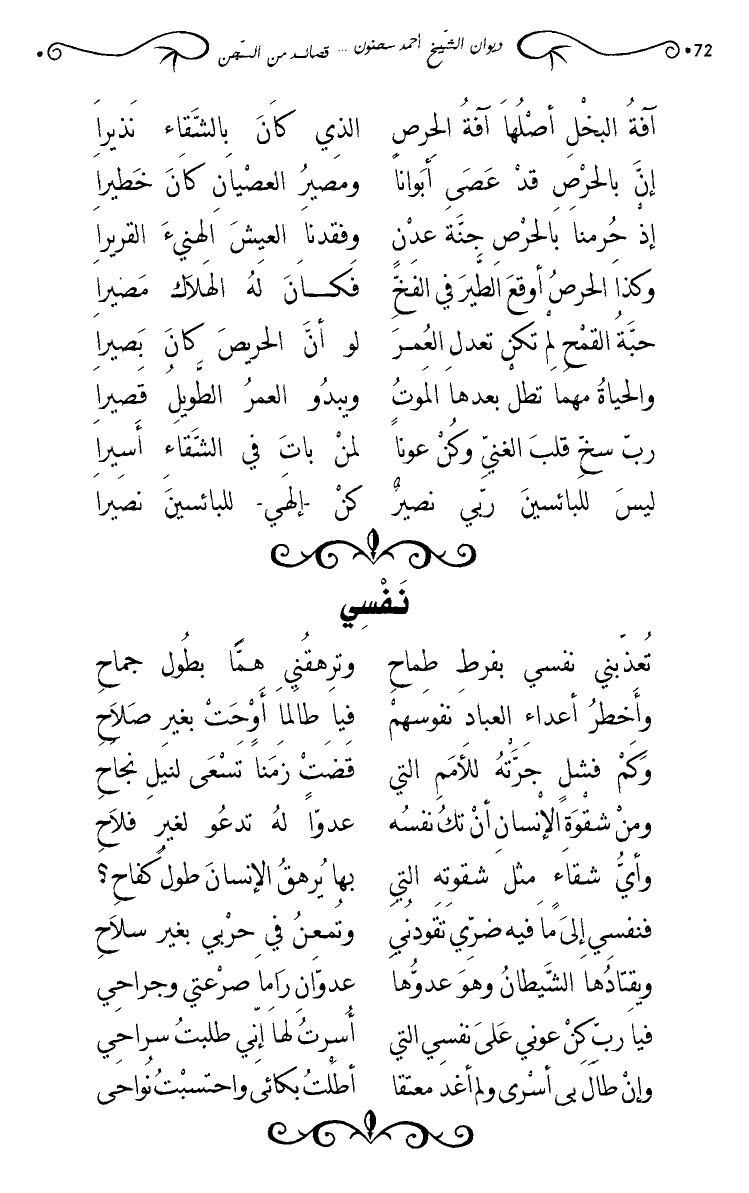 72 ديوان الشّيخ احمد سحنون ... قصائد من السّجن
آفةُ البخْلِ أصْلُها آفةُ الحِرصِ الذي كانَ بِالشَّقاءِ نَذيرا
إنَّ بالحْرْصِ قدْ عَصَى أبَوانا ومصيرُ العصْيانِ كانَ خَطيرا
إذْ حُرمنا بالحْرْصِ جنَّة عدْنٍ وفقدنا العيشَ الهنيءَ القريرا
وكذا الحرصُ أوقعَ الطَّيرَ في الفخّ فكانَ لهُ الهلاكَ مَصيرا
حبَّةُ القمْحِ لمْ تكنْ تعدل العُمرَ لو أنَّ الحريصَ كانَ بَصيرا
والحياةُ مهما تطلْ بعدها الموتُ ويبدُو العمرُ الطَّويلِ قصيرا
ربّ سخّ قلبَ الغنيّ وكُنْ عوناً لمنْ باتَ في الشَّقاءِ أسيرا
ليسَ للبائسينَ ربّي نصيرٌ كنْ -إلهي- للبائسينَ نصيرا
نَفْسِي
تُعذّبني نفسي بفرطِ طماحِ وترهقُني همًّا بطُول جماحِ
وأخطرُ أعداء العبادِ نفوسهمْ فيا طالما أوْحَتْ بغيرِ صَلاَحِ
وَكَمْ فشلٍ جرَّتْهُ للأمَمِ التي قضتْ زمَناً تسْعَى لنيلِ نجَاحِ
ومنْ شقْوَةِ الإنْسانِ أنْ تكُ نفسُه عدوّا لهُ تدعُو لغيرِ فلاَحِ
وأيُّ شقاءٍ مثل شقوتِهِ التِي بها يُرهقُ الإنسانَ طول كفاحِ؟
فنفسي إلىَ ما فيه ضرّي تقودنُي وتُمعنُ في حرْبي بغير سلاَحِ
ويقتادُها الشَّيطانُ وهوَ عدوُّها عدوّانِ رَاما صرْعتي وجراحي
فيا ربّ كنْ عوني عَلىَ نفسي التي أُسرتُ لها إنّي طلبتُ سراحي
وإنْ طالَ بي أسْرى ولم أغد معتقا أطلْتُ بكائي واحتسبْتُ نُواحي